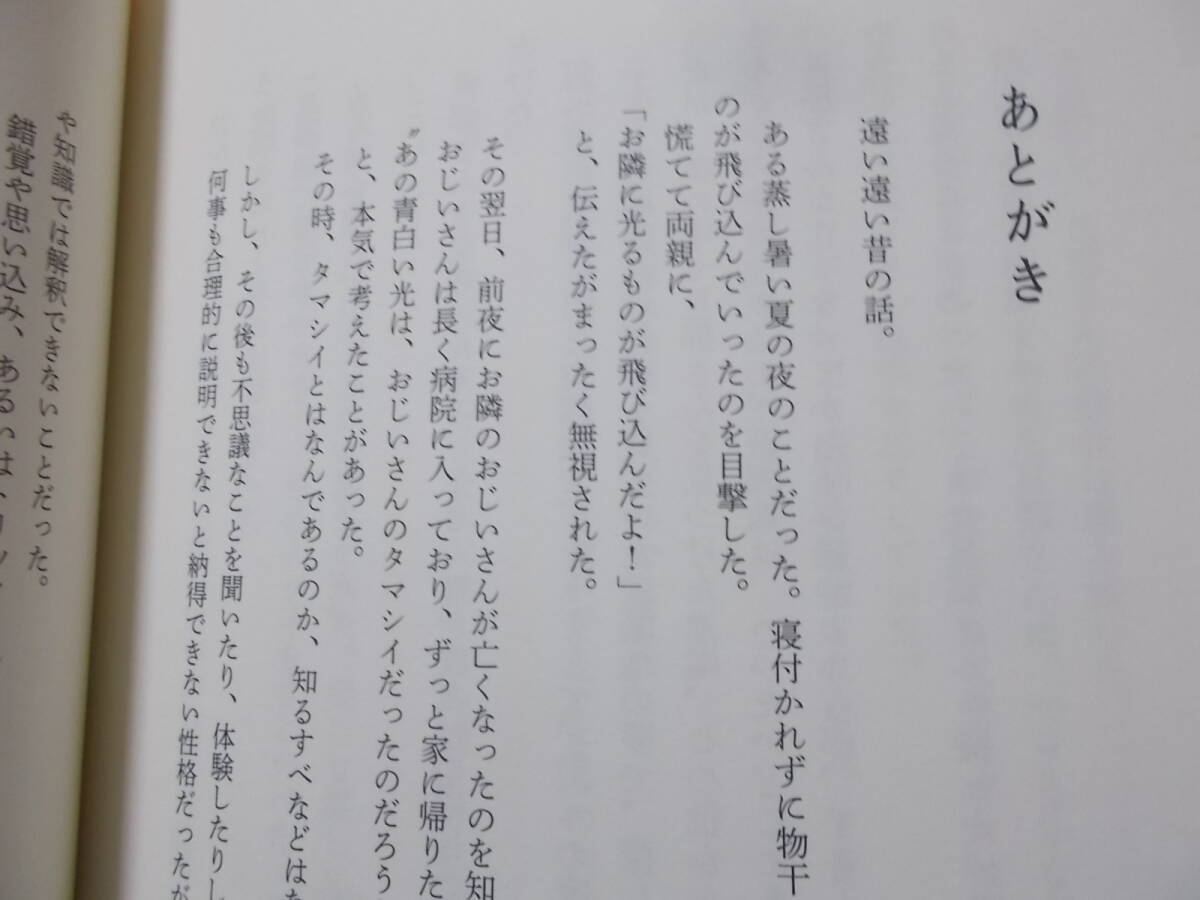 あとがき
遠い遠い昔の話。
ある蒸し暑い夏の夜のことだった。寝付かれずに物干
のが飛び込んでいったのを目撃した。
慌てて両親に、
「お隣に光るものが飛び込んだよ！」
と、伝えたがまったく無視された。
その翌日、前夜にお隣のおじいさんが亡くなったのを知
おじいさんは長く病院に入っており、ずっと家に帰りた
〝あの青白い光は、おじいさんのタマシイだったのだろう
と、本気で考えたことがあった。
その時、タマシイとはなんであるのか、知るすべなどはな
しかし、その後も不思議なことを聞いたり、体験したりし
何事も合理的に説明できないと納得できない性格だったが
や知識では解釈できないことだった。
錯覚や思い込み、あるいは、